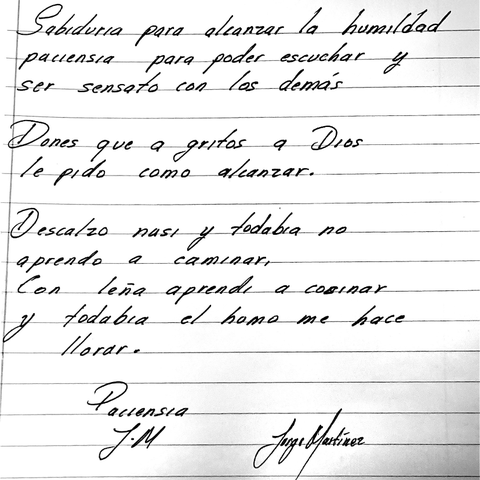 Sabiduria para alcanzar la humildad
paciensia para poder escuchar y
ser sensato con los demás
Dones que a gritos a Dios
le pido como alcanzar.
Descalzo nasi y todabia no
aprendo a caminar,
Con leña aprendi a cocinar
y todabia el homo me hace
llorar.
Paciensia
J.M Jorge Martinez